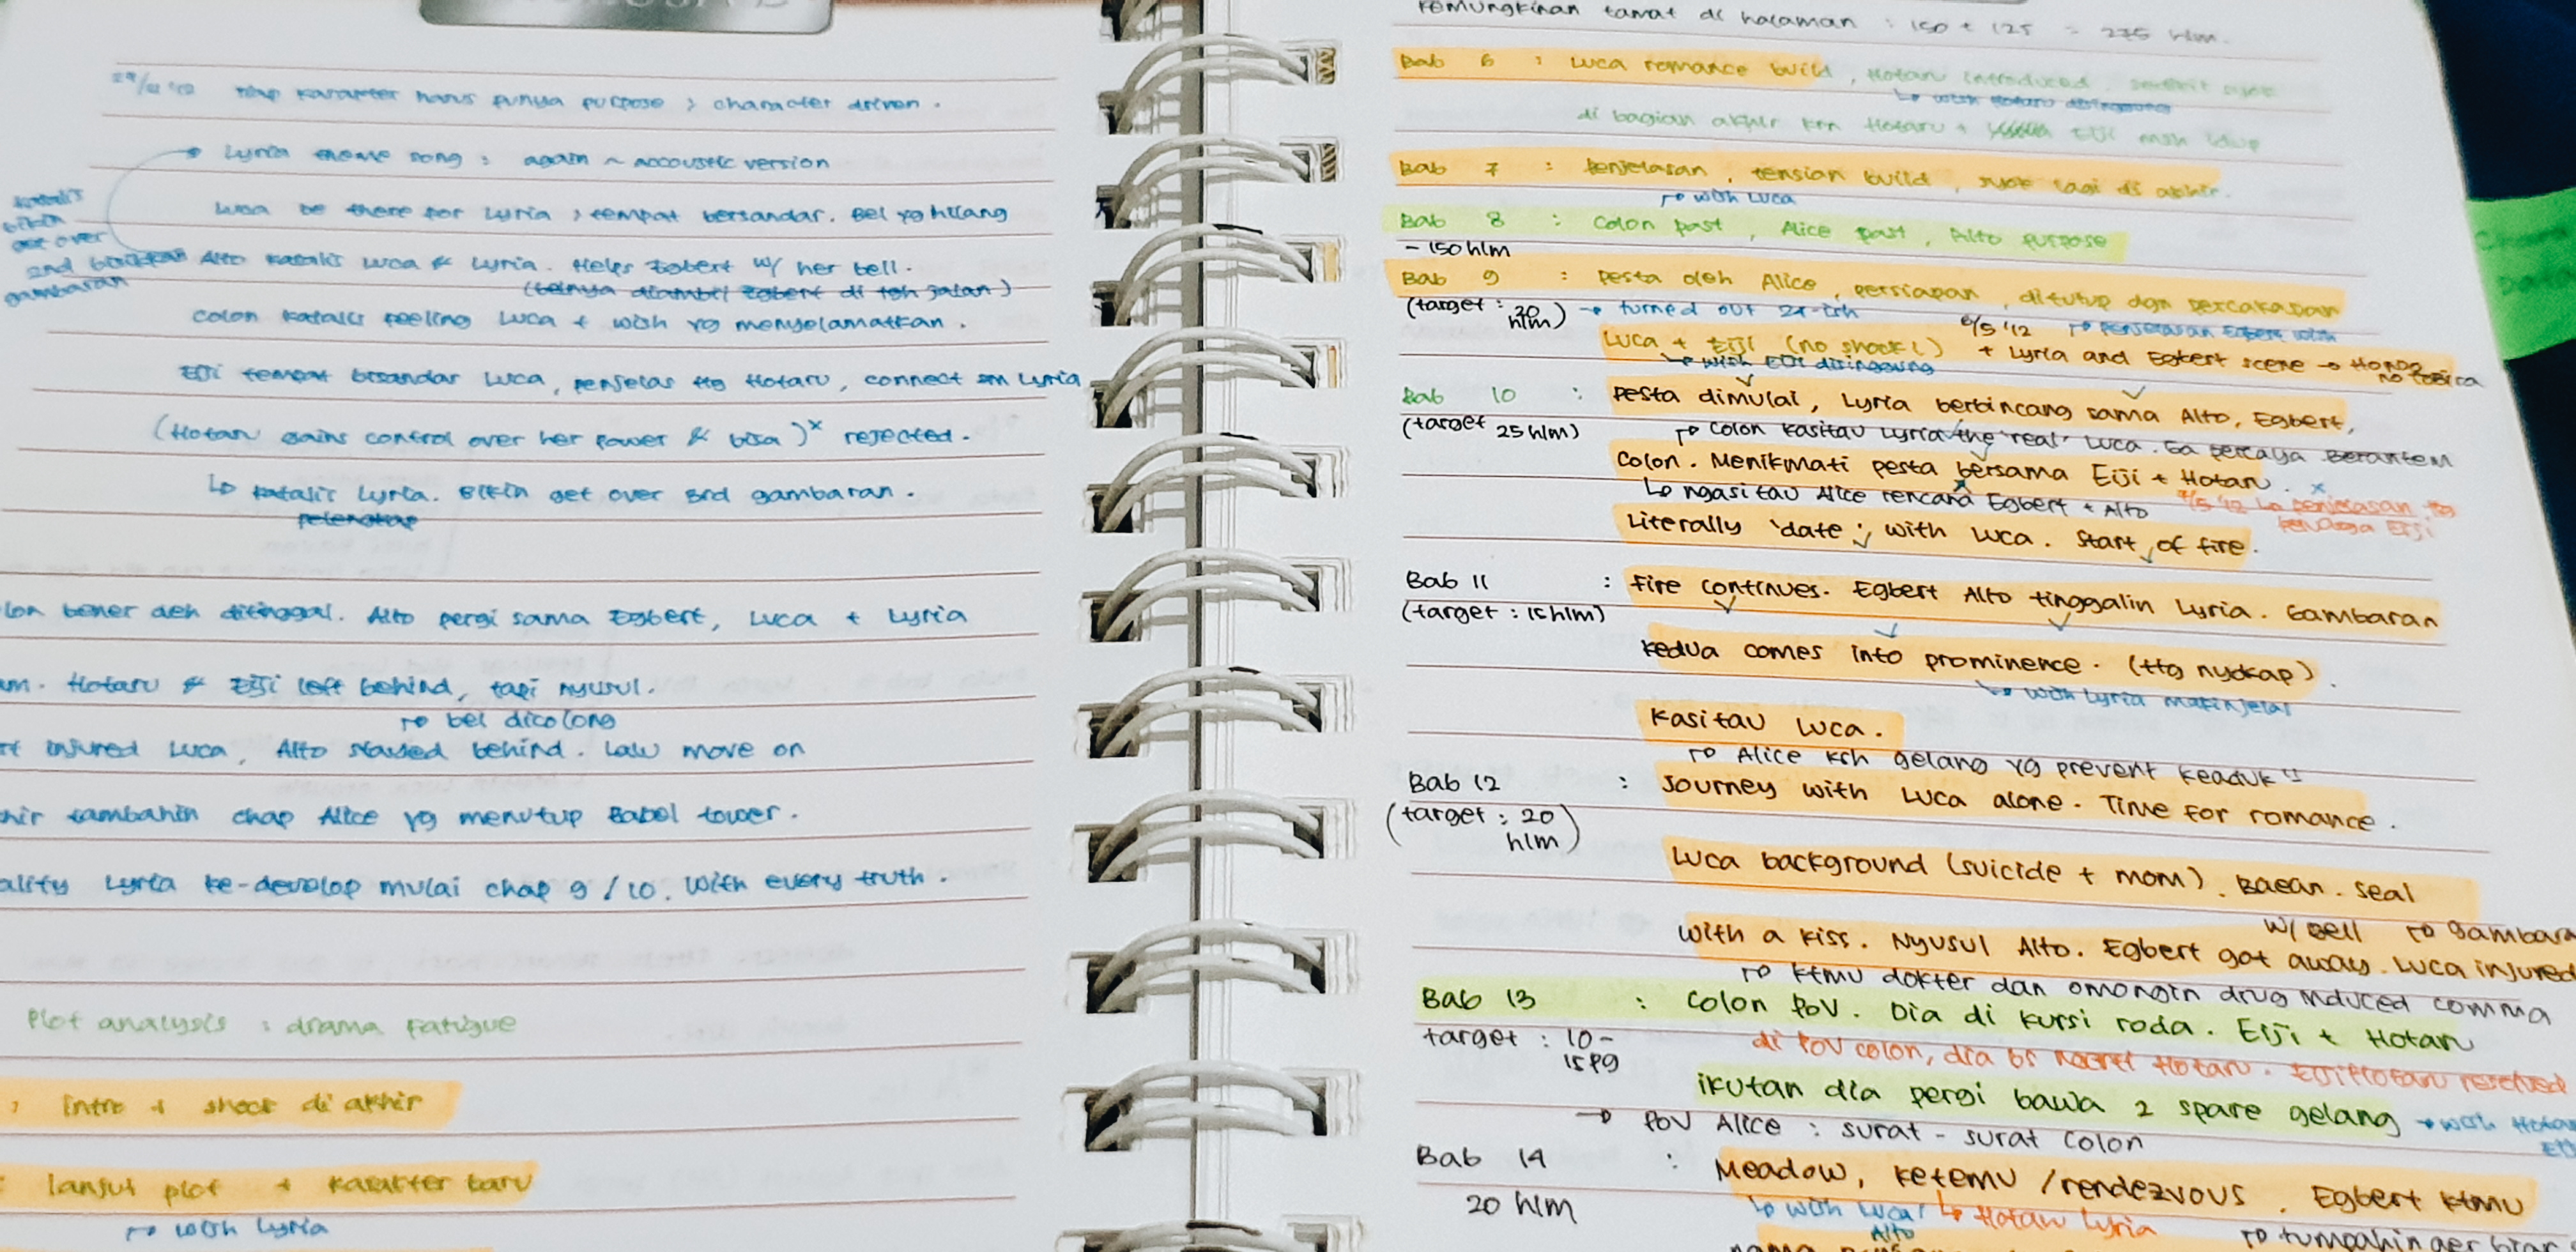 karakter harus punya purpose ; character driven.
Lyria theme song : again ~ accoustic version
Luca be there for Lyria ; tempat bersandar. Bel yg hilang
katalis
bikin
get over
2nd
gambaran
Alto katalis Luca & Lyria. Helps Egbert w/ her bell.
(belnya diambil Egbert di tgh jalan)
Colon katalis feeling Luca + wish yg menyelamatkan.
Eiji tempat bersandar Luca, penjelas ttg Hotaru, connect sm Lyria
(Hotaru gains control over her power & bisa)x rejected.
↳ katalis Lyria. Bikin get over 3rd gambaran.
pelengkap
lon bener deh ditinggal. Alto pergi sama Egbert, Luca + Lyria
am. Hotaru & Eiji left behind, tapi nyusul.
↱ bel dicolong
rt injured Luca, Alto stayed behind. Lalu move on
hir tambahin chap Alice yg menutup Babel tower.
ality Lyria ke-develop mulai chap 9 / 10. With every truth.
Plot analysis : drama Fatigue
: intro + shock di akhir
: lanjut plot + karakter baru
↱ with Lyria
kemungkinan tamat di halaman : 150 + 125 = 275 hlm.
Bab 6 : Luca romance build, Hotaru introduced,
di bagian akhir krn Hotaru + Eiji msh idup
Bab 7 : Penjelasan, tension build, syok lagi di akhir.
↱ with Luca
Bab 8 : Colon past, Alice past, Alto purpose
- 150 hlm
Bab 9 : Pesta oleh Alice, persiapan, ditutup dgn percakapan
(target : 20 hlm) → turned out
6/5 '12 ↱ penjelasan Egbert with
Luca + Eiji (no shock!) + Lyria and Egbert scene →
↳ with Eiji disinggung
Bab 10 : Pesta dimulai, Lyria berbincang sama Alto, Egbert,
(target 25 hlm) ↱ Colon kasitau Lyria the 'real' Luca. Ga percaya. Berantem
Colon. Menikmati pesta bersama Eiji + Hotaru.
↳ ngasi tau Alice rencana Egbert + Alto
↳ penjelasan ttg
Eiji
Literally 'date' with Luca. Start of fire.
Bab 11 : Fire continues. Egbert Alto tinggalin Lyria. Gambaran
(target : 15 hlm)
kedua comes into prominence. (ttg nyokap).
↳ with Lyria makin jelas
Kasitau Luca.
↱ Alice ksh gelang yg prevent keaduk"
Bab 12 : Journey with Luca alone. Time for romance.
(target : 20 hlm)
Luca background (suicide + mom). Seal
w/ bell ↱ gambara
with a kiss. Nyusul Alto. Egbert got away. Luca injured
↱ ktmu dokter dan omongin drug induced comma
Bab 13 : Colon POV. Dia di kursi roda. Eiji + Hotaru
target : 10 -
15 pg
di POV colon, dia Hotaru.
ikutan dia pergi bawa 2 spare gelang → with Hotar
→ POV Alice : surat - surat Colon
Bab 14 : Meadow, ketemu / rendezvous. Egbert ktmu
20 hlm
↳ with Luca ↳ Hotaru Lyria
Alto